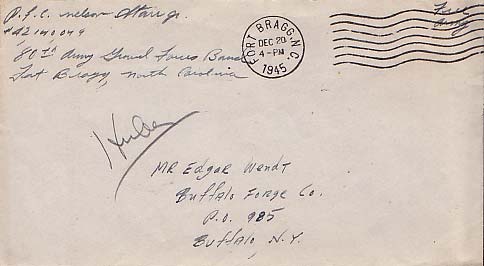 P.F.C. Nelson Starr Jr.
#42140049
80th Army Ground Forces Band
Fort Bragg, North Carolina
FORT BRAGG, N.C.
DEC 20
4-PM
1945
Free
Army
Mr Edgar Wendt
Buffalo Forge Co.
P.O. 985
Buffalo, N.Y.